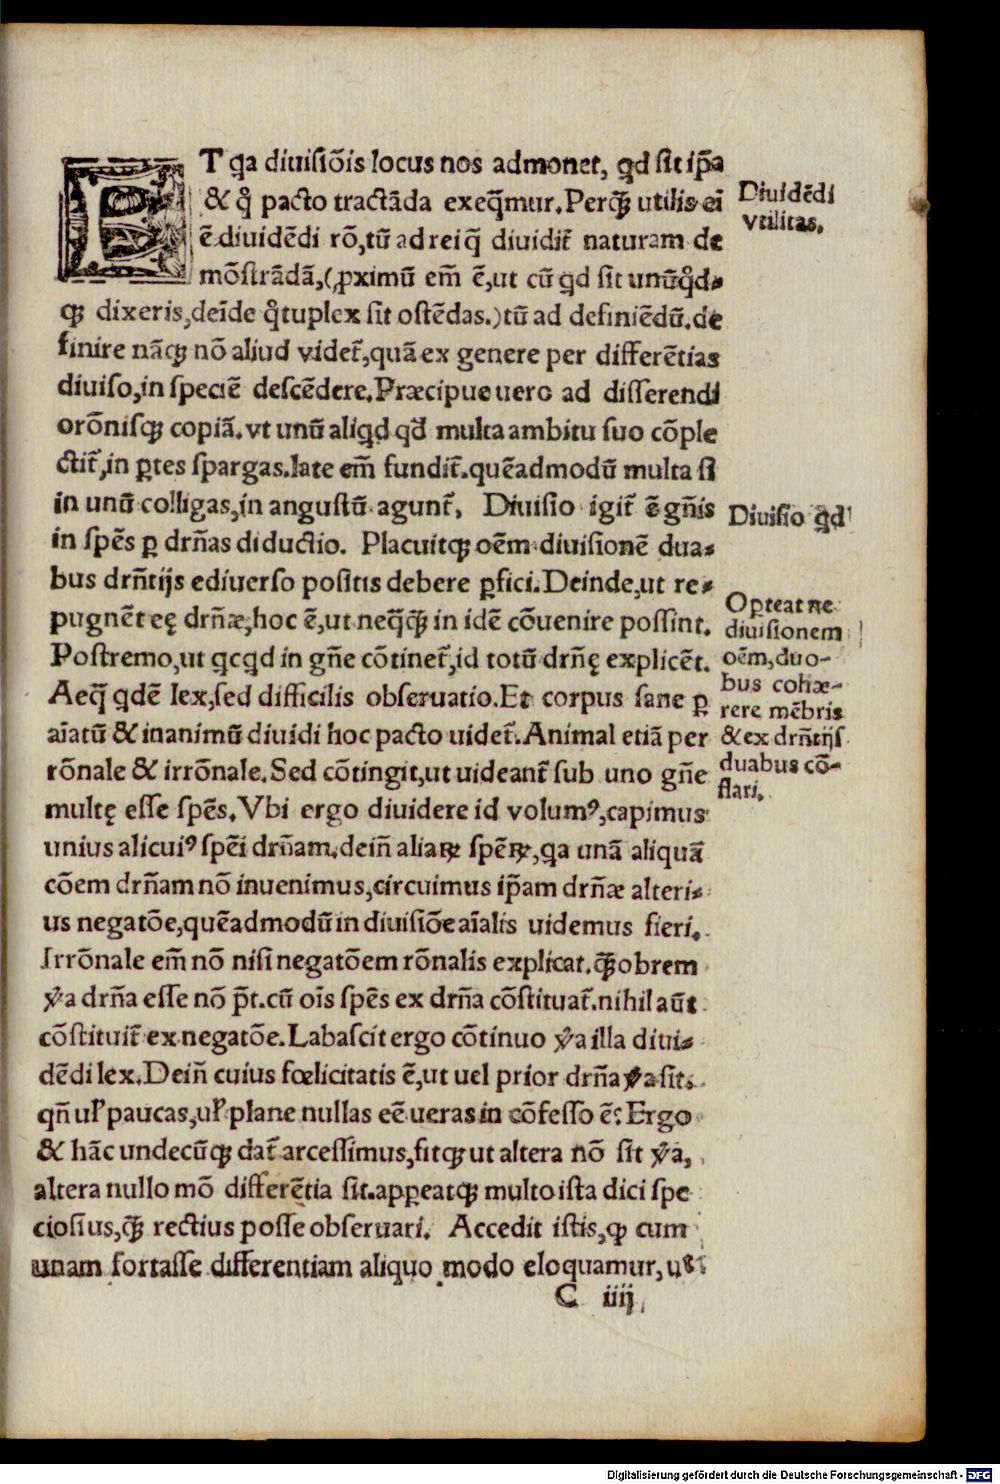 ET qa diuisiõis locus nos admonet, qd sit ip̃a
& q̊ pacto tractãda exeq̃mur. Perq̃ꝫ utilis ei
ẽ diuidẽdi rõ, tũ ad rei q̃ diuidit̃ naturam de
mõstrãdã, (ꝓximũ em̃ ẽ, ut cũ qd sit unũq̊d-
qꝫ dixeris, deĩde q̊tuplex sit ostẽdas.) tũ ad definiẽdũ. de
finire nãqꝫ nõ aliud videt̃, quã ex genere per differẽtias
diuiso, in speciẽ descẽdere. Præcipue uero ad disserendi
orõnisqꝫ copiã. vt unũ aliqd qđ multa ambitu suo cõple
ctit̃, in ꝑtes spargas. late em̃ fundit̃. quẽadmodũ multa si
in unũ colligas, in angustũ agunt̃. Diuisio igit̃ ẽ gñis
in spẽs ꝑ drñas diductio. Placuitqꝫ oẽm diuisionẽ dua-
bus drñtijs ediuerso positis debere ꝑfici. Deinde, ut re-
pugnẽt eę drñæ, hoc ẽ, ut neq̃q̃ꝫ in idẽ cõuenire possint.
Postremo, ut qcqd in gñe cõtinet̃, id totũ drñę explicẽt.
Aeq̃ qdẽ lex, sed difficilis obseruatio. Et corpus sane ꝑ
aĩatũ & inanimũ diuidi hoc pacto uidet̃. Animal etiã per
rõnale & irrõnale. Sed cõtingit, ut uideant̃ sub uno gñe
multę esse spẽs. Vbi ergo diuidere id volumꝰ, capimus
unius alicuiꝰ spẽi drñam. deiñ aliaꝝ spẽꝝ, qa unã aliquã
cõem drñam nõ inuenimus, circuimus ip̃am drñæ alteri-
us negatõe, quẽadmodũ in diuisiõe aĩalis uidemus fieri.
Irrõnale em̃ nõ nisi negatõem rõnalis explicat. q̃ꝫobrem
ỹa drña esse nõ p̃t. cũ oĩs spẽs ex drña cõstituat̃. nihil aũt
cõstituit̃ ex negatõe. Labascit ergo cõtinuo ỹa illa diui-
dẽdi lex. Deiñ cuius fœlicitatis ẽ, ut uel prior drña ỹa sit.
qñ uꝉ paucas, uꝉ plane nullas eẽ ueras in cõfesso ẽ: Ergo
& hãc undecũqꝫ dat̃ arcessimus, fitqꝫ ut altera nõ sit ỹa,
altera nullo mõ differẽtia sit. apꝑeatqꝫ multo ista dici spe
ciosius, q̃ꝫ rectius posse obseruari. Accedit istis, ꝙ cum
unam fortasse differentiam aliquo modo eloquamur, ut
C iiij
Diuidẽdi
vtilitas.
Diuisio qd
Oꝑteat ne
diuisionem
oẽm, duo-
bus cohæ-
rere mẽbris
& ex drñtijs
duabus cõ-
flari.
Digitalisierung gefördert durch die Deutsche Forschungsgemeinschaft - DFG